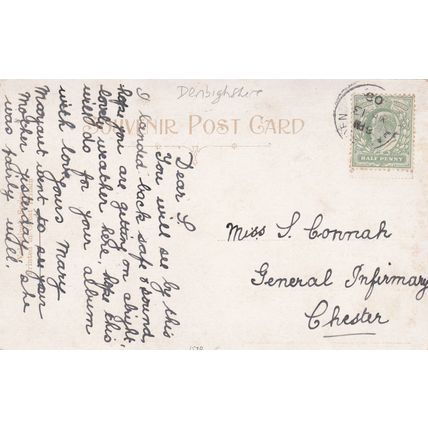 Denbighshire
SOUVENIR POST CARD
Dear S
You will see by this
I landed back safe & sound
hope you are getting on alright,
lovely weather here, hope this
will do for your album
with love Yours Mary
Margaret went to see your
Mother yesterday she
was fairly well.
HALF PENNY
Miss S. Connah
General Infirmary
Chester